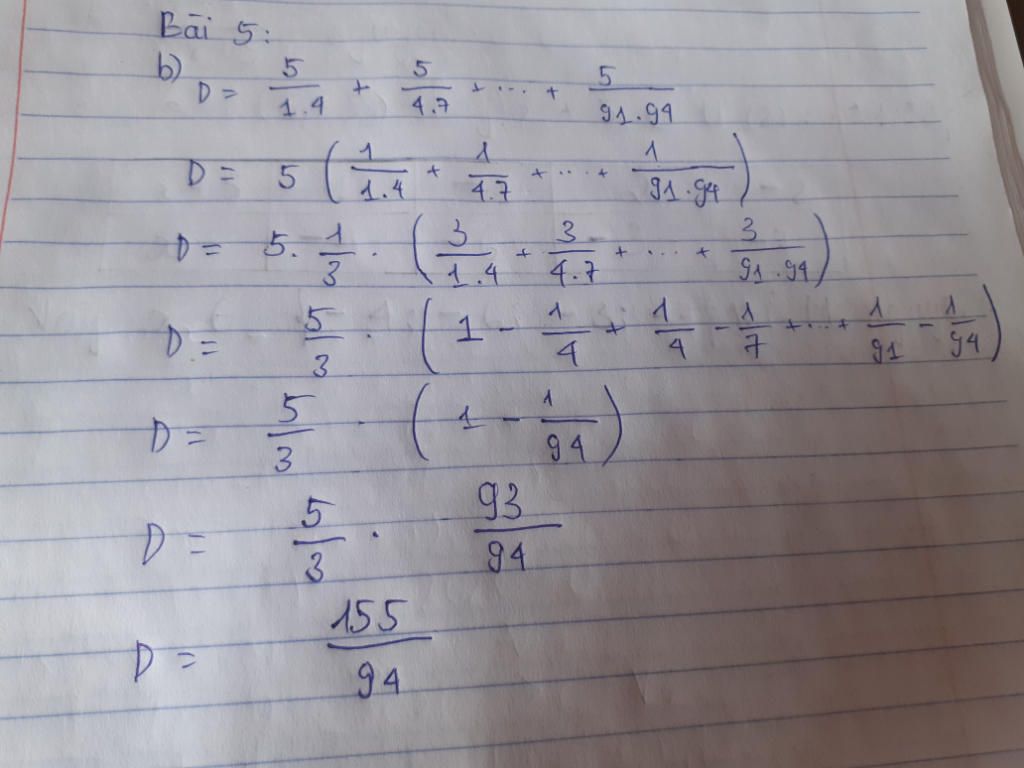 Bài 5:
b) D = 5/1.4 + 5/4.7 + ... + 5/91.94
D = 5 (1/1.4 + 1/4.7 + ... + 1/91.94)
D = 5. 1/3 . (3/1.4 + 3/4.7 + ... + 3/91.94)
D = 5/3 . (1 - 1/4 + 1/4 - 1/7 + ... + 1/91 - 1/94)
D = 5/3 . (1 - 1/94)
D = 5/3 . 93/94
D = 155/94